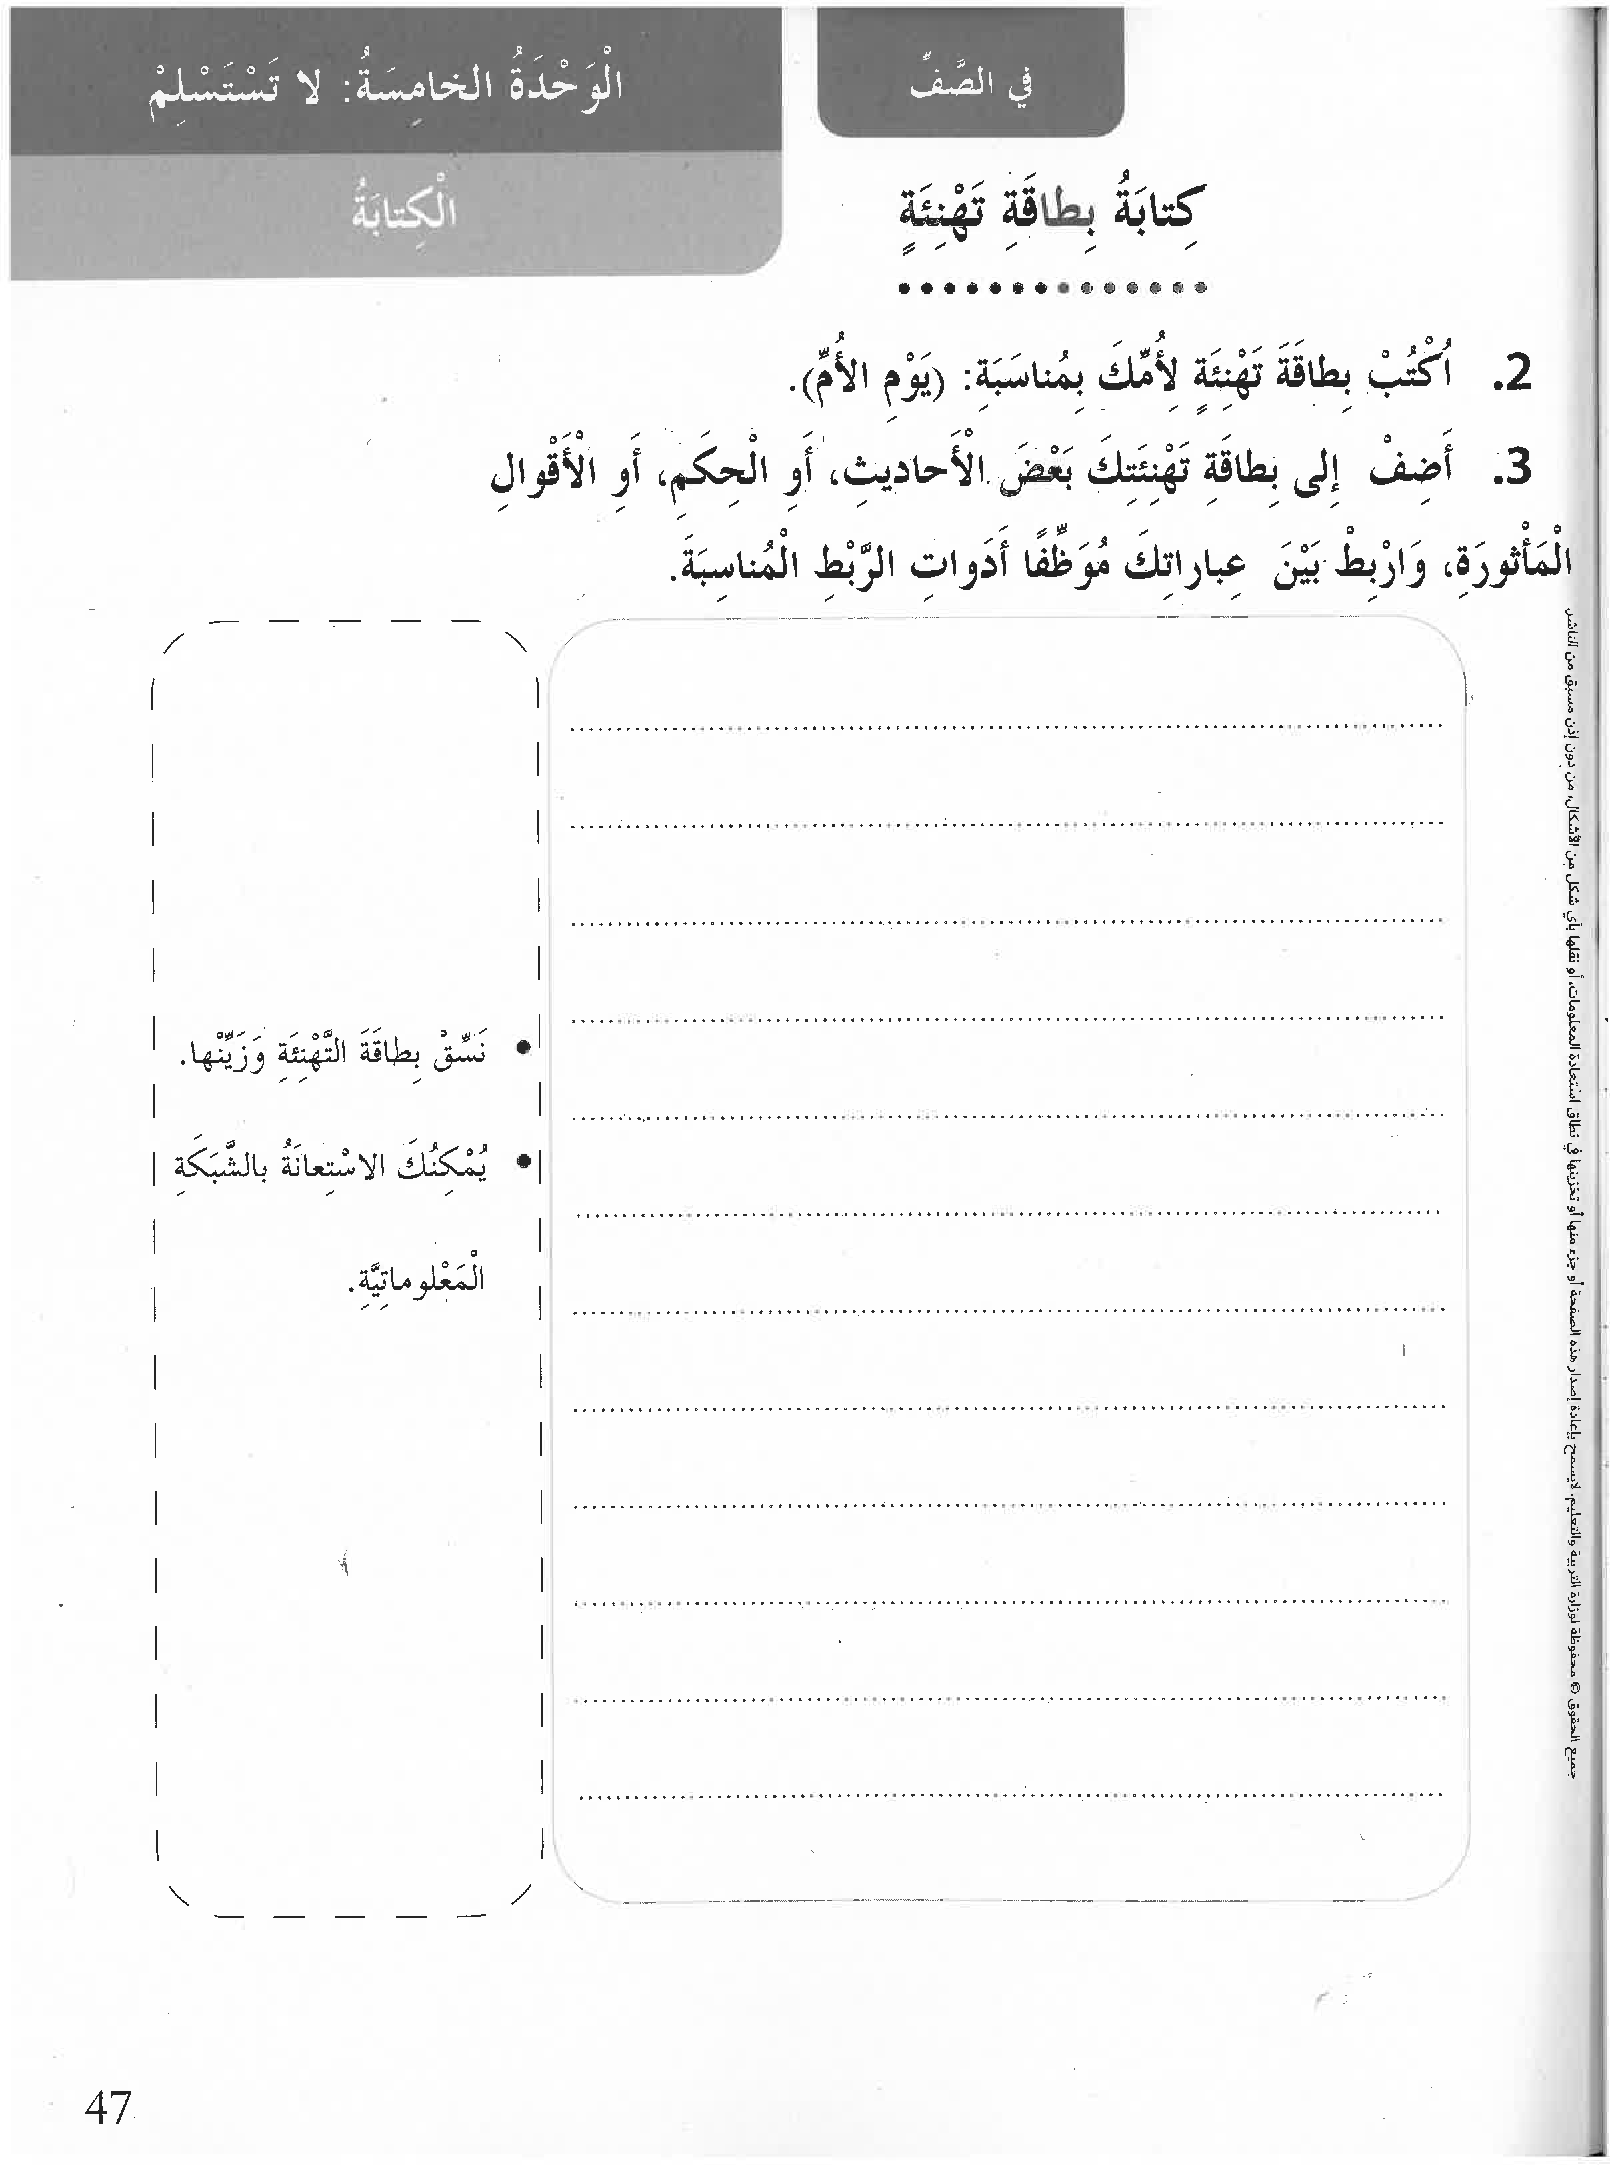 في الصَّفِّ
الْوَحْدَةُ الخامِسَةُ: لا تَسْتَسْلِمْ
الْكِتابَةُ
كِتابَةُ بِطاقَةِ تَهْنِئَةٍ
2. اُكْتُبْ بِطاقَةَ تَهْنِئَةٍ لِأُمِّكَ بِمُناسَبَةِ: (يَوْمِ الأُمِّ).
3. أَضِفْ إِلى بِطاقَةِ تَهْنِئَتِكَ بَعْضَ الْأَحاديثِ، أَوِ الْحِكَمِ، أَوِ الْأَقْوالِ
الْمَأْثورَةِ، وَارْبِطْ بَيْنَ عِباراتِكَ مُوَظِّفًا أَدَواتِ الرَّبْطِ الْمُناسِبَةَ.
• نَسِّقْ بِطاقَةَ التَّهْنِئَةِ وَزَيِّنْها.
• يُمْكِنُكَ الاسْتِعانَةُ بالشَّبَكَةِ
الْمَعْلوماتِيَّةِ.
جميع الحقوق © محفوظة لوزارة التربية والتعليم. لايسمح بإعادة إصدار هذه الصفحة أو جزء منها أو تخزينها في نطاق استعادة المعلومات، أو نقلها بأي شكل من الأشكال، من دون إذن مسبق من الناشر
47